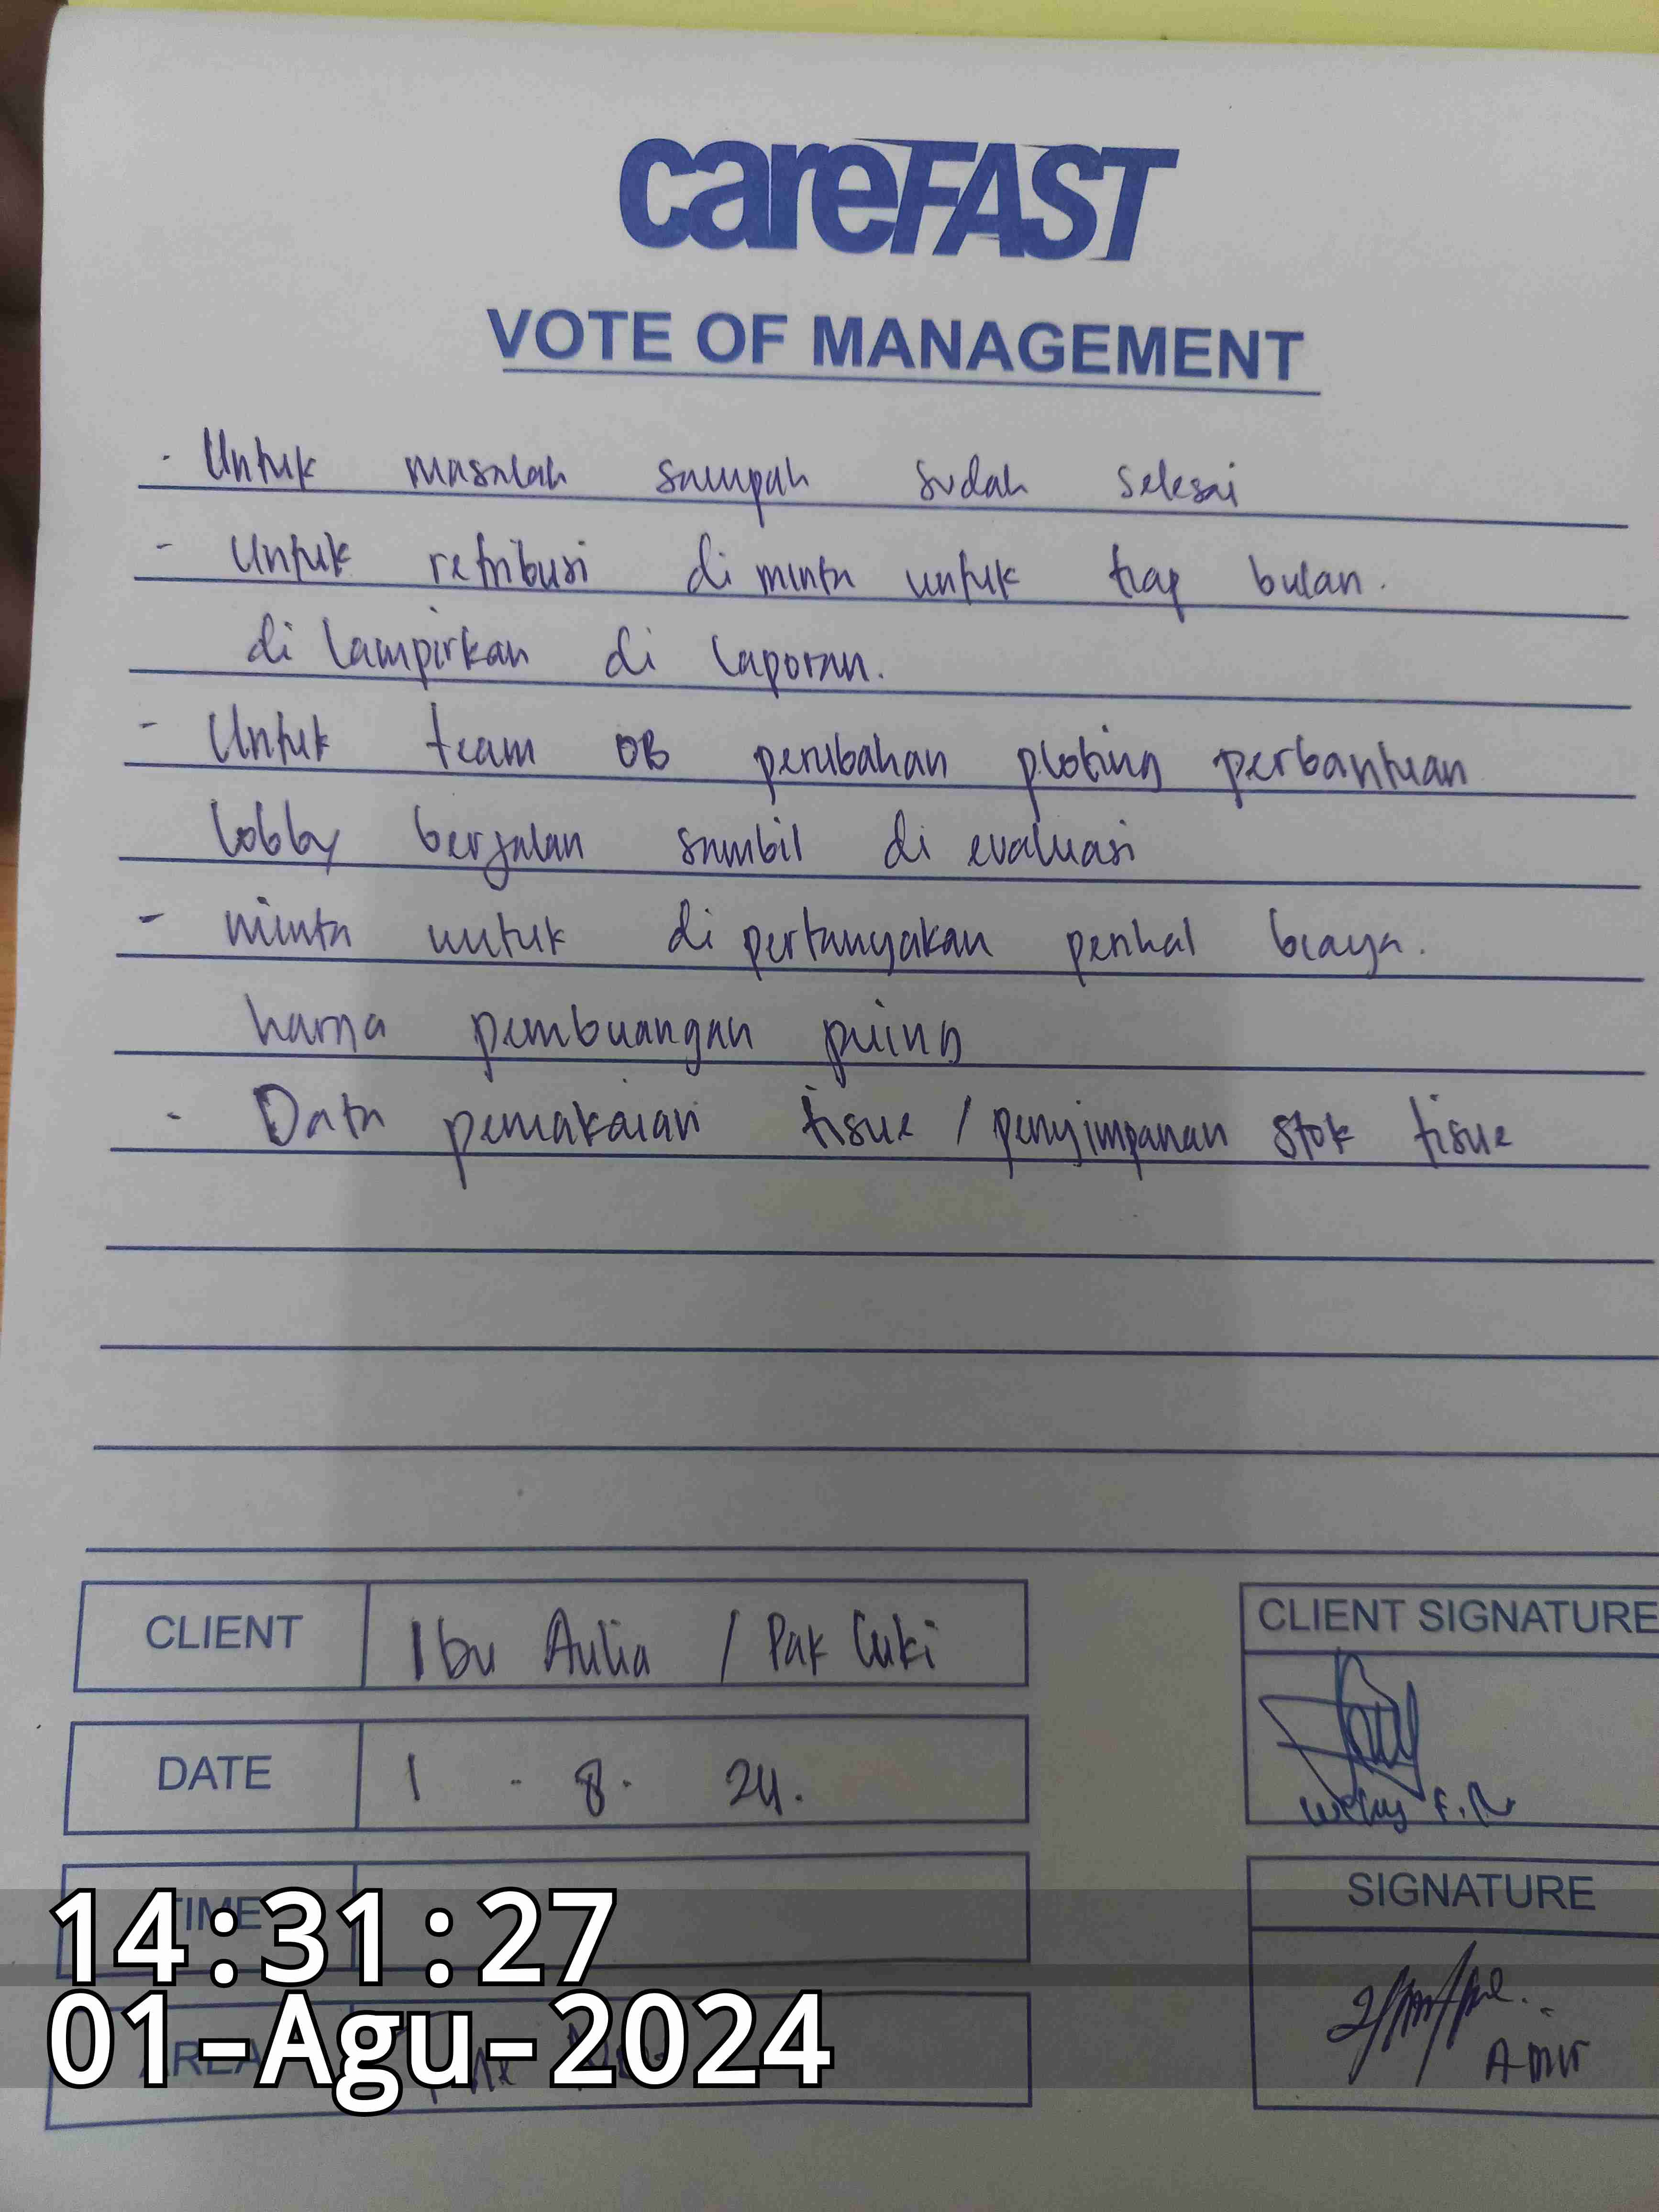 careFAST
VOTE OF MANAGEMENT
- Untuk masalah sampah sudah selesai
- Untuk retribusi di minta untuk tiap bulan.
di lampirkan di laporan.
- Untuk team OB perubahan ploting perbantuan
lobby berjalan sambil di evaluasi
- minta untuk di pertanyakan perihal biaya.
harga pembuangan puing
- Data pemakaian tisue / penyimpanan stok tisue
CLIENT Ibu Aulia / Pak Cuki
CLIENT SIGNATURE
DATE 1 - 8. 24.
TIME
SIGNATURE
Amir
AREA
14:31:27
01-Agu-2024